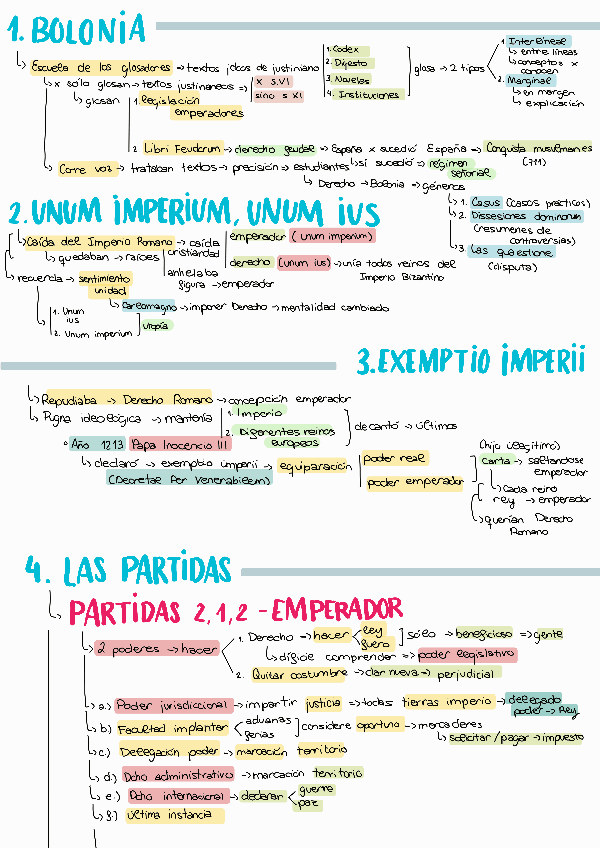 1. BOLONIA
↳ Escuela de los glosadores → textos jcos de justiniano 1. Codex 2. Digesto 3. Novelas 4. Instituciones glosa → 2 tipos 1. Interlineal ↳ entre líneas ↳ conceptos x conocen 2. Marginal ↳ en margen ↳ explicación
↳ x sólo glosan → textos justinianeos → x s.VI sino s XI
↳ glosan 1. legislación emperadores
2. Libri Feudorum → derecho feudal → España x sucedió España → Conquista musulmanes (711)
↳ sí sucedió → régimen señorial
↳ Corre voz → trataban textos → precisión → estudiantes
↳ Derecho → Bolonia → géneros
↳ 1. Casus (casos prácticos)
↳ 2. Dissesiones dominorum (resumenes de controversias)
↳ 3 Las questione (disputa)
2. UNUM IMPERIUM, UNUM IUS
↳ Caída del Imperio Romano → caída emperador (unum imperium) derecho (unum ius) → unía todos reinos del Imperio Bizantino
↳ quedaban → raíces cristiandad
anhelaba figura → emperador
↳ recuerda → sentimiento unidad
↳ Carlomagno → imponer Derecho → mentalidad cambiado
↳ 1. Unum ius
2. Unum imperium utopía
3. EXEMPTIO IMPERII
↳ Repudiaba → Derecho Romano → concepción emperador
↳ Pugna ideológica → mantenía 1. Imperio 2. Diferentes reinos europeos decantó → últimos
° Año 1213 Papa Inocencio III
↳ declaró → exemptio imperii → equiparación poder real poder emperador
(Decretal Per Venerabilem)
(hijo ilegítimo)
carta → saltandose emperador
↳ Cada reino
rey → emperador
↳ querían Derecho Romano
4. LAS PARTIDAS
↳ PARTIDAS 2,1,2 - EMPERADOR
↳ 2 poderes → hacer 1. Derecho → hacer ley fuero sólo → beneficioso → gente
↳ difícil comprender → poder legislativo
2. Quitar costumbre → clar nueva → perjudicial
↳ a.) Poder jurisdiccional → impartir justicia → todas tierras imperio → delegado poder → Rey
↳ b) Facultad implantar aduanas ferias considere oportuno → mercaderes
↳ solicitar / pagar → impuesto
↳ c.) Delegación poder → marcación territorio
↳ d) Dcho administrativo → marcación territorio
↳ e.) Dcho internacional → declarar guerra paz
↳ f.) última instancia